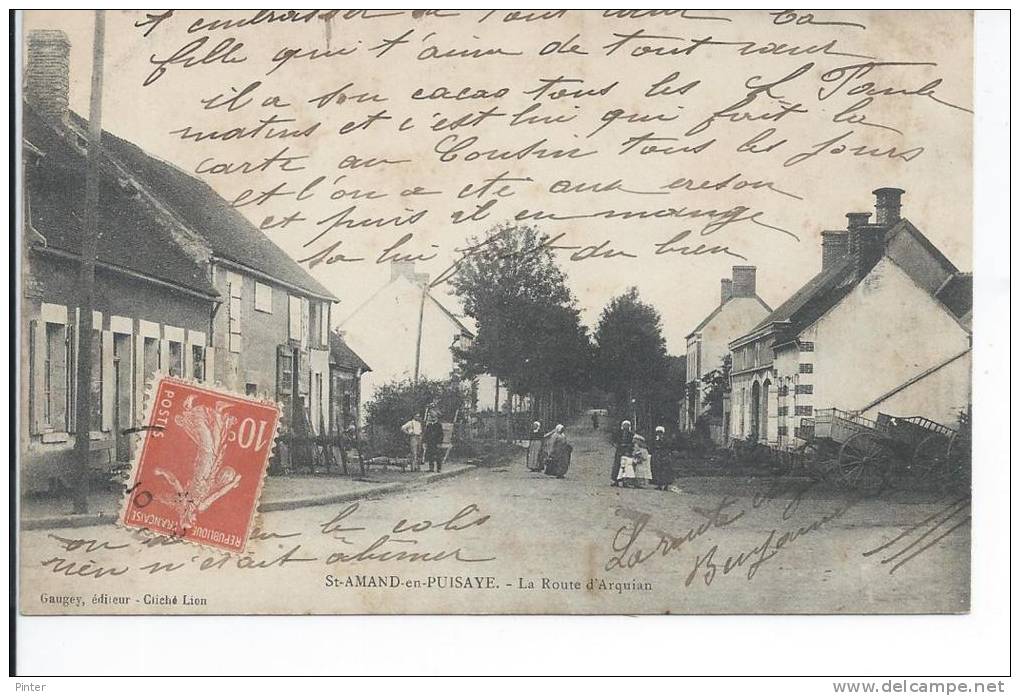 t'embrasser de tout cœur Ta
fille qui t'aime de tout cœur
il a son cacao tous les
matins et c'est lui qui fait la
carte au Cousin tous les jours
et l'on a été aux creson
et puis il en mange
sa lui fait du bien
10c.
POSTES
REPUBLIQUE FRANÇAISE
10
on a le colis
rien n'était abîmer
La route
St-AMAND-en-PUISAYE. - La Route d'Arquian
Gaugey, éditeur - Cliché Lion
Pinter
www.delcampe.net